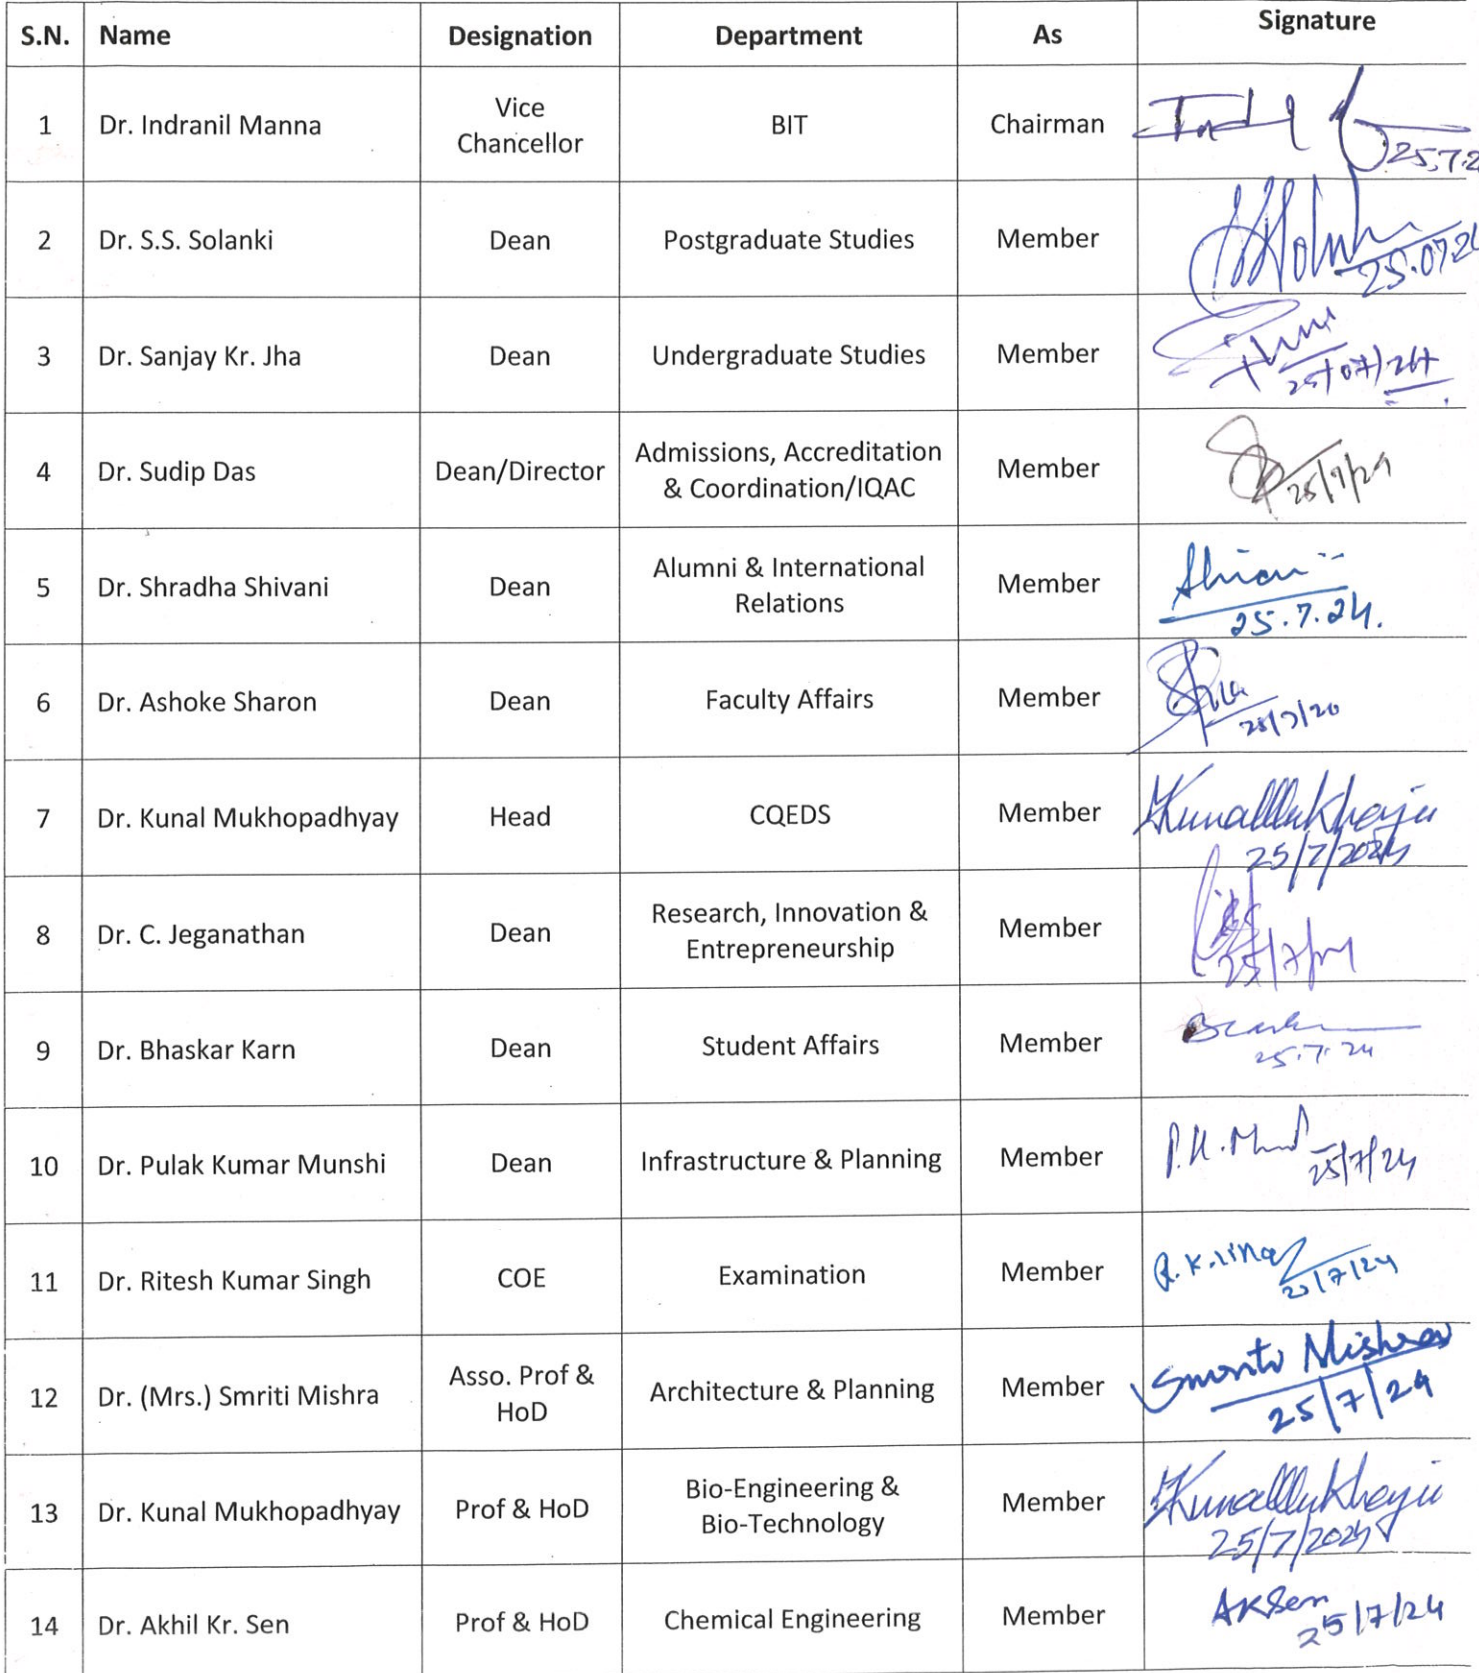 S.N. Name Designation Department As Signature
1 Dr. Indranil Manna Vice Chancellor BIT Chairman 25.7.2
2 Dr. S.S. Solanki Dean Postgraduate Studies Member 25.07.2
3 Dr. Sanjay Kr. Jha Dean Undergraduate Studies Member 25/07/24
4 Dr. Sudip Das Dean/Director Admissions, Accreditation & Coordination/IQAC Member 25/7/24
5 Dr. Shradha Shivani Dean Alumni & International Relations Member 25.7.24.
6 Dr. Ashoke Sharon Dean Faculty Affairs Member
7 Dr. Kunal Mukhopadhyay Head CQEDS Member 25/7/2024
8 Dr. C. Jeganathan Dean Research, Innovation & Entrepreneurship Member 25/7/24
9 Dr. Bhaskar Karn Dean Student Affairs Member 25.7.24
10 Dr. Pulak Kumar Munshi Dean Infrastructure & Planning Member 25/7/24
11 Dr. Ritesh Kumar Singh COE Examination Member
12 Dr. (Mrs.) Smriti Mishra Asso. Prof & HoD Architecture & Planning Member Smriti Mishra 25/7/24
13 Dr. Kunal Mukhopadhyay Prof & HoD Bio-Engineering & Bio-Technology Member 25/7/2024
14 Dr. Akhil Kr. Sen Prof & HoD Chemical Engineering Member AKSen 25/7/24